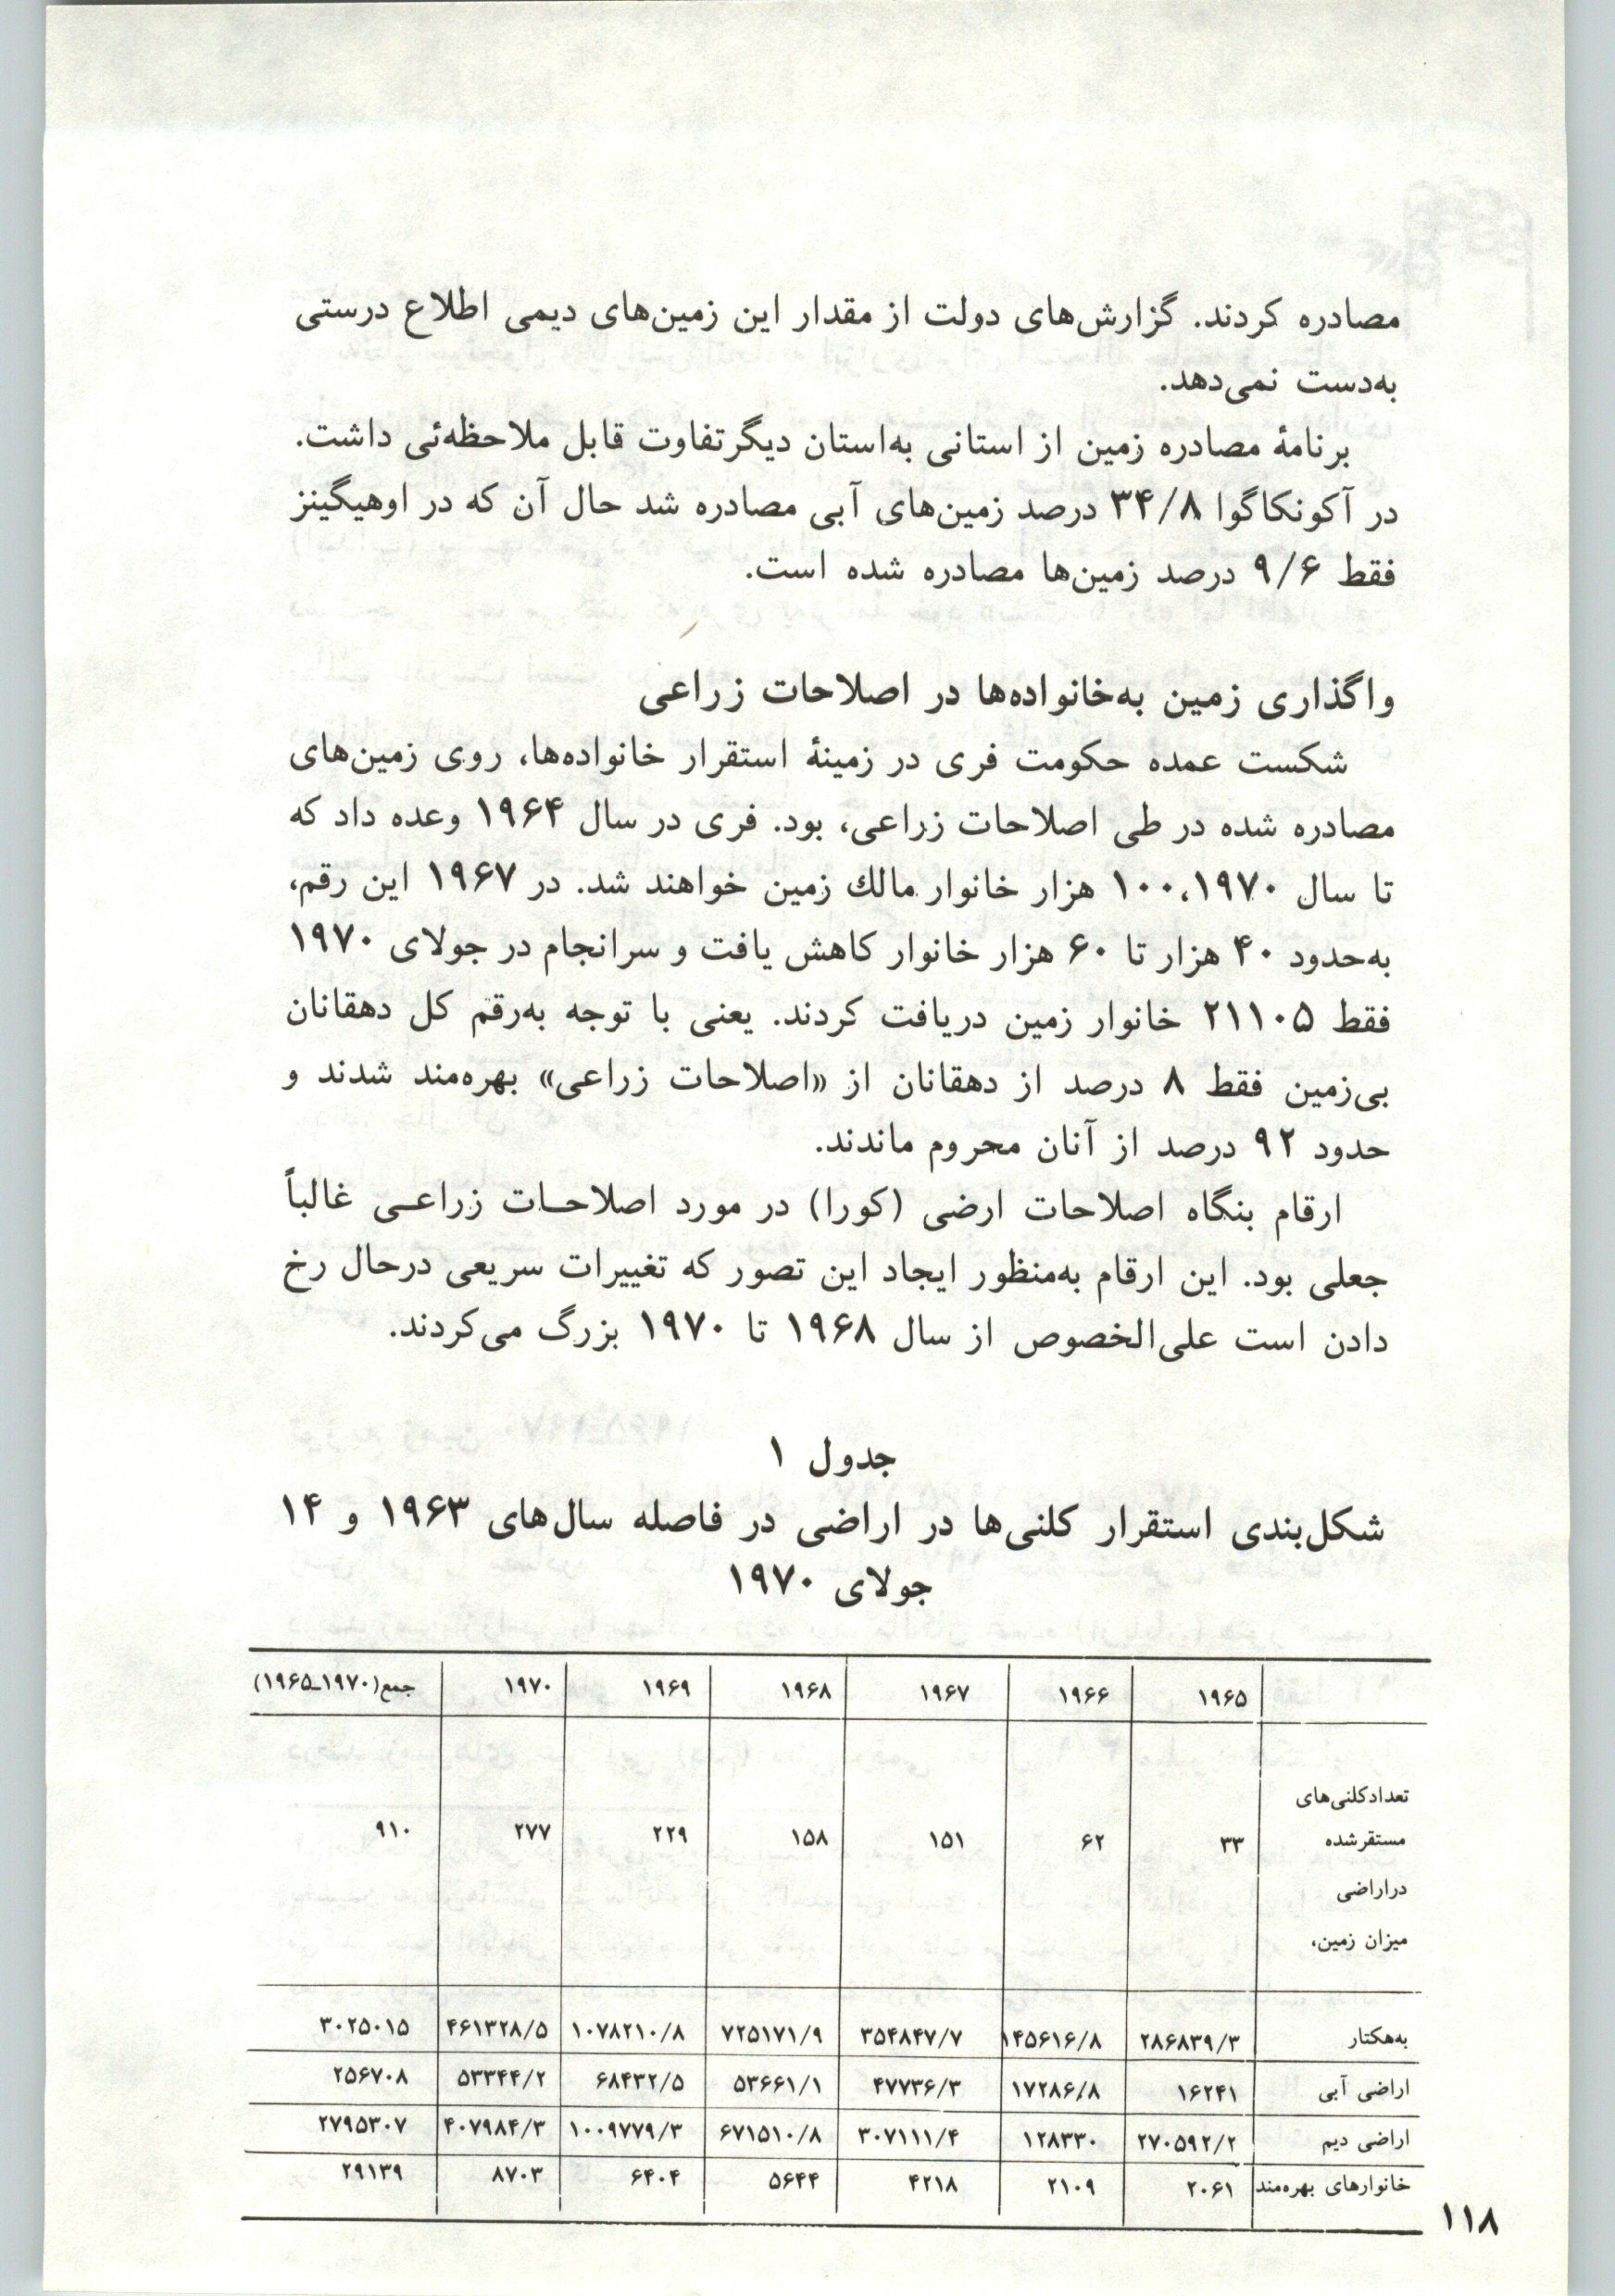 مصادره کردند. گزارش‌های دولت از مقدار این زمین‌های دیمی اطلاع درستی
به‌دست نمی‌دهد.
برنامهٔ مصادره زمین از استانی به‌استان دیگرتفاوت قابل ملاحظه‌ئی داشت.
در آکونکاگوا ۳۴/۸ درصد زمین‌های آبی مصادره شد حال آن که در اوهیگینز
فقط ۹/۶ درصد زمین‌ها مصادره شده است.
واگذاری زمین به‌خانواده‌ها در اصلاحات زراعی
شکست عمده حکومت فری در زمینهٔ استقرار خانواده‌ها، روی زمین‌های
مصادره شده در طی اصلاحات زراعی، بود. فری در سال ۱۹۶۴ وعده داد که
تا سال ۱۹۷۰،۱۰۰ هزار خانوار مالك زمین خواهند شد. در ۱۹۶۷ این رقم،
به‌حدود ۴۰ هزار تا ۶۰ هزار خانوار کاهش یافت و سرانجام در جولای ۱۹۷۰
فقط ۲۱۱۰۵ خانوار زمین دریافت کردند. یعنی با توجه به‌رقم کل دهقانان
بی‌زمین فقط ۸ درصد از دهقانان از «اصلاحات زراعی» بهره‌مند شدند و
حدود ۹۲ درصد از آنان محروم ماندند.
ارقام بنگاه اصلاحات ارضی (کورا) در مورد اصلاحـات زراعـی غالباً
جعلی بود. این ارقام به‌منظور ایجاد این تصور که تغییرات سریعی درحال رخ
دادن است علی‌الخصوص از سال ۱۹۶۸ تا ۱۹۷۰ بزرگ می‌کردند.
جدول ۱
شکل‌بندی استقرار کلنی‌ها در اراضی در فاصله سال‌های ۱۹۶۳ و ۱۴
جولای ۱۹۷۰
۱۹۶۵ ۱۹۶۶ ۱۹۶۷ ۱۹۶۸ ۱۹۶۹ ۱۹۷۰ جمع(۱۹۷۰ـ۱۹۶۵)
تعدادکلنی‌های
مستقرشده ۳۳ ۶۲ ۱۵۱ ۱۵۸ ۲۲۹ ۲۷۷ ۹۱۰
دراراضی
میزان زمین،
به‌هکتار ۲۸۶۸۳۹/۳ ۱۴۵۶۱۶/۸ ۳۵۴۸۴۷/۷ ۷۲۵۱۷۱/۹ ۱۰۷۸۲۱۰/۸ ۴۶۱۳۲۸/۵ ۳۰۲۵۰۱۵
اراضی آبی ۱۶۲۴۱ ۱۷۲۸۶/۸ ۴۷۷۳۶/۳ ۵۳۶۶۱/۱ ۶۸۴۳۲/۵ ۵۳۳۴۴/۲ ۲۵۶۷۰۸
اراضی دیم ۲۷۰۵۹۲/۲ ۱۲۸۳۳۰ ۳۰۷۱۱۱/۴ ۶۷۱۵۱۰/۸ ۱۰۰۹۷۷۹/۳ ۴۰۷۹۸۴/۳ ۲۷۹۵۳۰۷
خانوارهای بهره‌مند ۲۰۶۱ ۲۱۰۹ ۴۲۱۸ ۵۶۴۴ ۶۴۰۴ ۸۷۰۳ ۲۹۱۳۹
۱۱۸